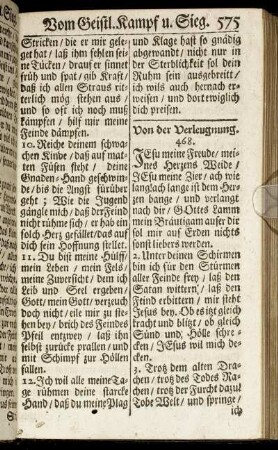 Vom Geistl. Kampf u. Sieg. 575
Stricken/ die er mir gele-
get hat/ laß ihm fehlen sei-
ne Tücken/ drauf er sinnet
früh und spat/ gib Kraft/
daß ich allen Straus rit-
terlich mög stehen aus/
und so oft ich noch muß
kämpfen / hilf mir meine
Feinde dämpfen.
10. Reiche deinem schwa-
chen Kinde/ das auf mat-
ten Füsen steht / deine
Gnaden-Hand geschwin-
de/ bis die Angst fürüber
geht ; Wie die Jugend
gängle mich/ daß der Feind
nicht rühme sich/ er hab ein
solch Herz gefället/ das auf
dich sein Hoffnung stellet.
11. Du bist meine Hülff/
mein Leben / mein Fels/
meine Zuversicht/ dem ich
Leib und Seel ergeben/
Gott/ mein Gott/ verzeuch
doch nicht/ eile mir zu ste-
hen bey/ brich des Feindes
Pfeil entzwey/ laß ihn
selbst zurücke prallen/ und
mit Schimpf zur Höllen
fallen.
12. Ich wil alle meine Ta-
ge rühmen deine starcke
Hand/ daß du meine Plag
und Klage hast so gnädig
abgewandt/ nicht nur in
der Sterblichkeit sol dein
Ruhm sein ausgebreitt/
ich wils auch hernach er-
weisen/ und dort ewiglich
dich preisen.
Von der Verleugnung.
468.
JEsu meine Freude/ mei-
nes Herzens Weide /
JEsu meine Zier/ ach wie
lang/ach lange ist dem Her-
zen bange/ und verlanget
nach dir/ GOttes Lamm
mein Bräutigam/ ausser dir
sol mir auf Erden nichts
sonst liebers werden.
2. Unter deinen Schirmen
bin ich für den Stürmen
aller Feinde frey/ laß den
Satan wittern/ laß den
Feind erbittern/ mir steht
Jesus bey. Ob es itzt gleich
kracht und blitzt/ ob gleich
Sünd und Hölle schre-
cken / JEsus wil mich de-
cken.
3. Trotz dem alten Dra-
chen/ trotz des Todes Ra-
chen/ trotz der Furcht dazu!
Tobe Welt/ und springe/
ich